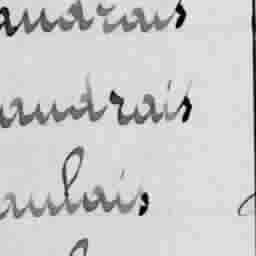 audrais
audrais
aulais